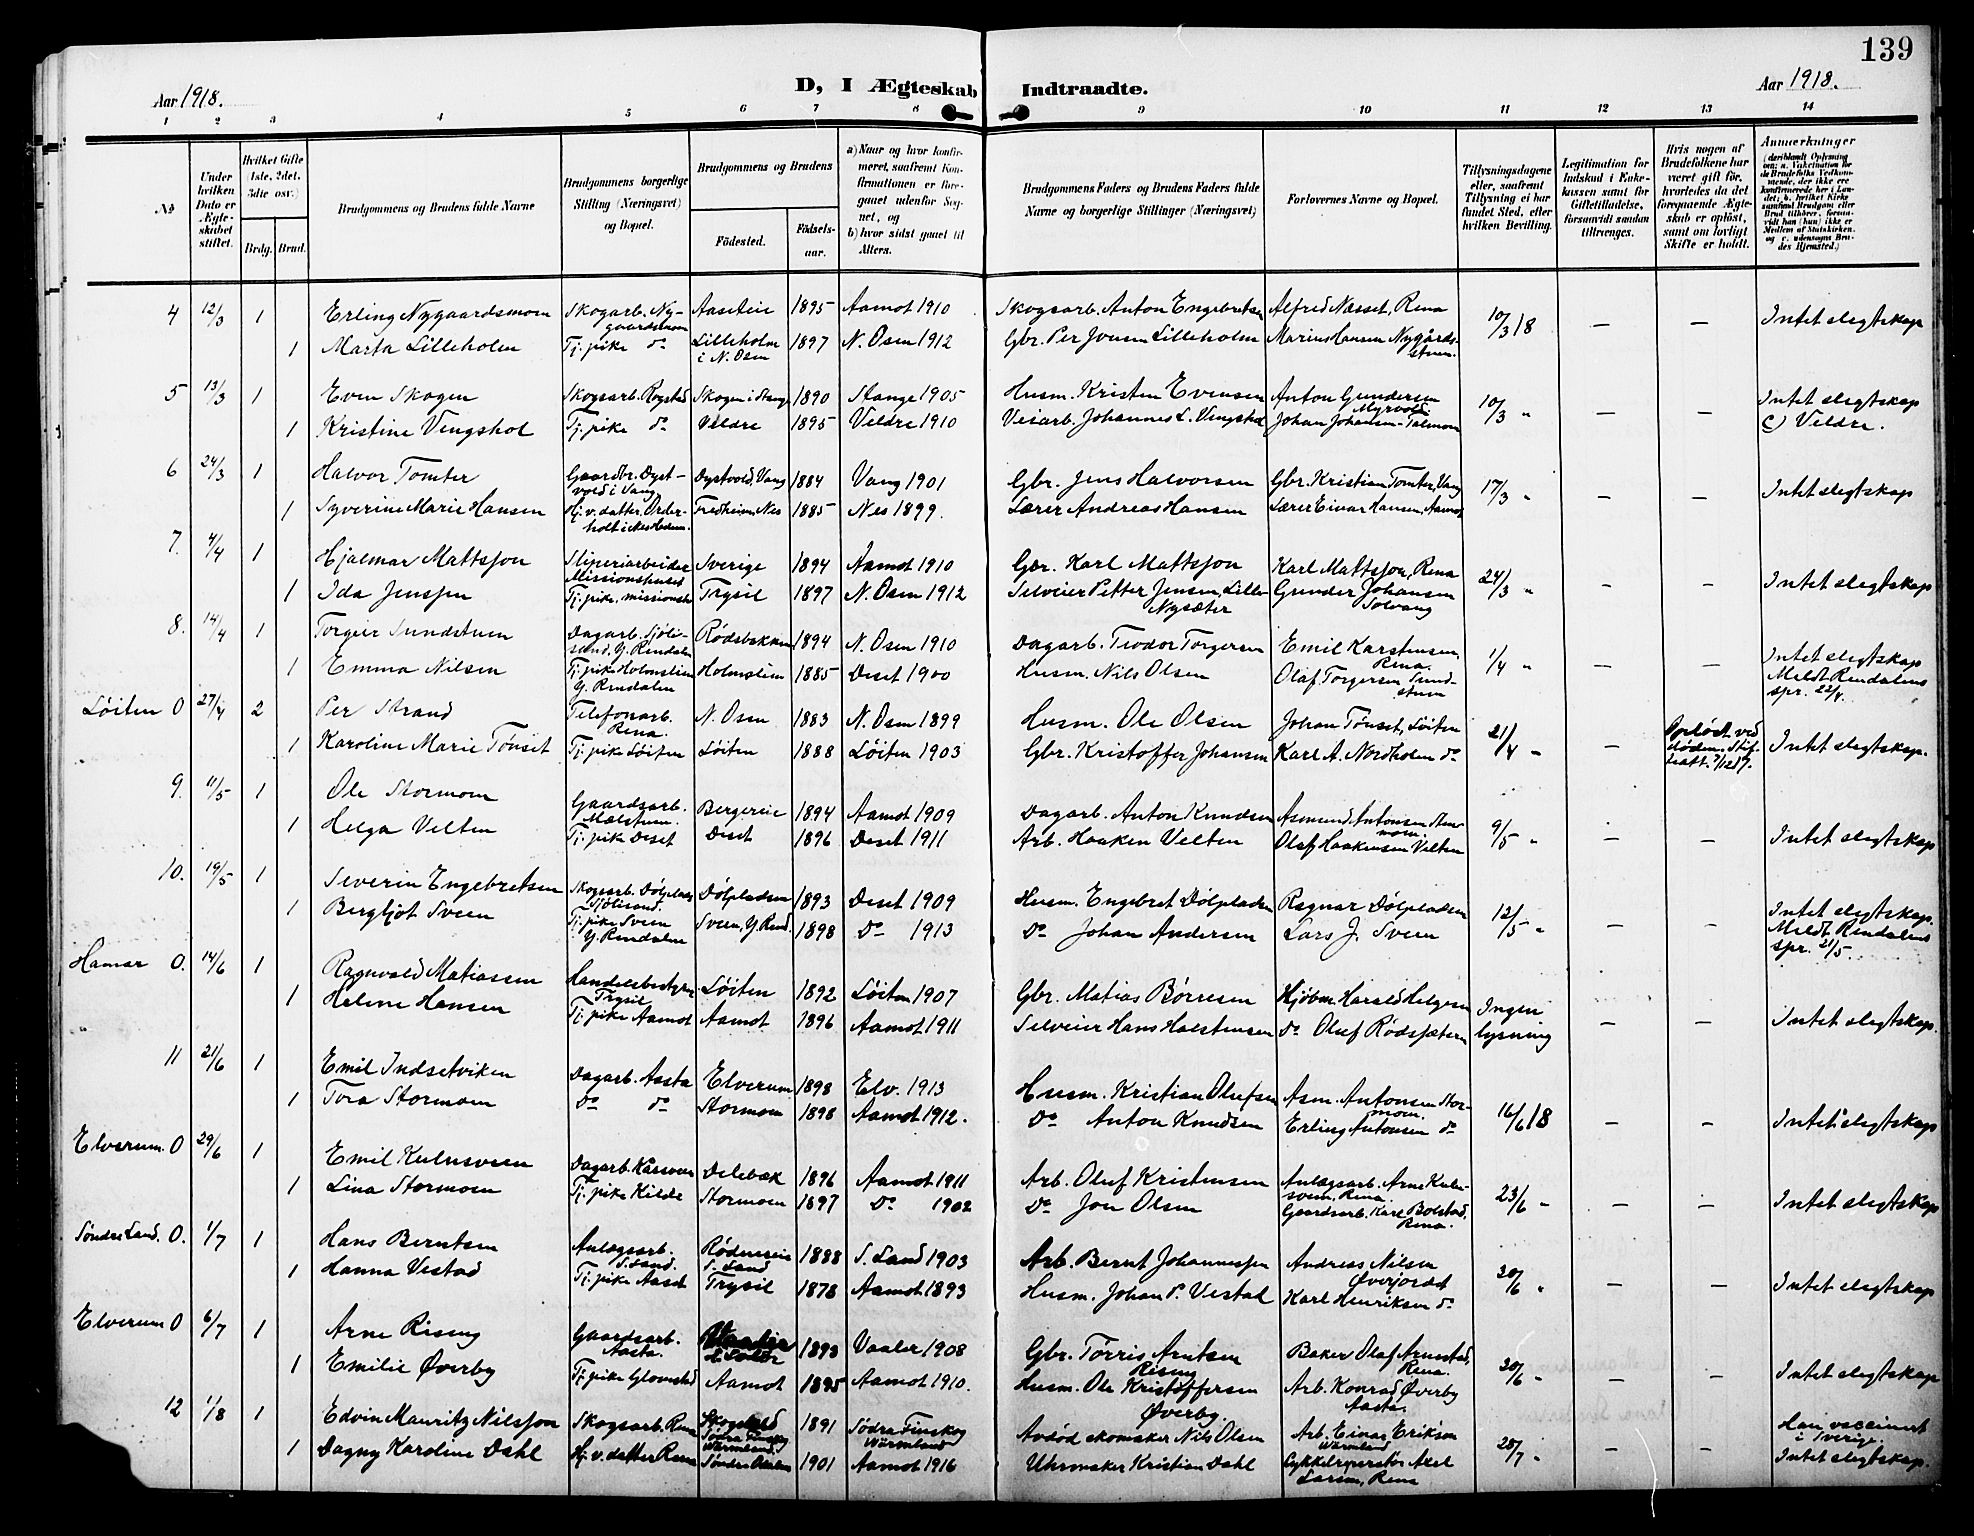 139
D, I Ægteskab Indtraadte.
Aar 1918.
Aar 1918.
1 2 3 4 5 6 7 8 9 10 11 12 13 14
№
Under hvilken Dato er Ægteskabet stiftet.
Hvilket Gifte (1ste, 2det, 3die osv.)
Brdg. Brud.
Brudgommens og Brudens fulde Navne
Brudgommens borgerlige Stilling (Næringsvei) og Bopæl.
Brudgommens og Brudens
Födested.
Födselsaar.
a) Naar og hvor konfirmeret, saafremt Konfirmationen er foregaaet udenfor Sognet, og
b) hvor sidst gaaet til Alters.
Brudgommens Faders og Brudens Faders fulde Navne og borgerlige Stillinger (Næringsvei)
Forlovernes Navne og Bopæl.
Tillysningsdagene eller, saafremt Tillysning ei har fundet Sted, efter hvilken Bevilling.
Legitimation for Indskud i Enkekassen samt for Giftetilladelse, forsaavidt saadan tiltrænges.
Hvis nogen af Brudefolkene har været gift för, hvorledes da det foregaaende Ægteskab er oplöst, samt om lovligt Skifte er holdt.
Anmærkninger
4 12/3 1 Erling Nygaardsmoen Skogarb. Nygaardsmoen Aaseteie 1895 Aamot 1910 Skogsarb. Anton Engebretsen Alfred Næsset, Rena 10/3 18 — — Intet slegtskap
1 Marta Lilleholen Tj. pike do Lilleholen i N. Osen 1897 N. Osen 1912 Gbr. Per Jonsen Lilleholen Marius Hansen Nygårdsstuen.
5 13/3 1 Even Skogen Skogsarb. Rogstad Skogen i Stange 1890 Stange 1905 Husm. Kristen Evensen Anton Gundersen Myrvold 10/3 " — — Intet slegtskap
1 Kristine Vengshol Tj. pike do Veldre 1895 Veldre 1910 Veiarb. Johannes L. Vengshol Johan Johansen - Talmoen c) Veldre.
6 24/3 1 Halvor Tomter Gaardbr. Dystvold i Vang Dystvold, Vang 1884 Vang 1901 Gbr. Jens Halvorsen Gbr. Kristian Tomter, Vang 17/3 " — — Intet slegtskap
1 Syverine Marie Hansen Hj. v. datter. Fredheim, Nes 1885 Nes 1899. Lærer Andreas Hansen Lærer Einar Hansen, Aamot
7. 4/4 1 Hjalmar Mattsson Sliperiarbeider Missionshuset Sverige 1894 Aamot 1910 Gbr. Karl Mattsson Karl Mattsson, Rena 24/3 " — — Intet slegtskap
1 Ida Jenssen Tj. pike, missionsh. Trysil 1897 N. Osen 1912 Selveier Petter Jensen, Lille Nysæter Gunder Johansen Solvang
8. 14/4 1 Torgeir Sundstuen Dagarb. Sjölisand, Y. Rendalen Rødsbakken 1894 N. Osen 1910 Dagarb. Teodor Torgersen Emil Karstensen, Rena. 1/4 " — — Intet slegtskap
1 Emma Nilsen Tj. pike Holmstien Y. Rendalen Holmstien 1885 Deset 1900 Husm. Nils Olsen Olaf Torgersen Sundstuen Meldt Rendalens spr. 22/4.
Løiten 0 27/4 2 Per Strand Telefonarb. Rena. N. Osen 1883 N. Osen 1899 Husm. Ole Olsen Johan Tønset, Løiten 21/4 " — Opløst ved døden. Intet slegtskap.
1 Karoline Marie Tønset Tj. pike Løiten Løiten 1888 Løiten 1903 Gbr. Kristoffer Johansen Karl A. Nordholen do
9. 11/5 1 Ole Stormoen Gaardsarb. Mælstuen. Bergereie 1894 Aamot 1909 Dagarb. Anton Knudsen Asmund Antonsen Stormoen. 9/5 " — — Intet slegtskap
1 Helga Velten Tj. pike Deset Deset 1896 Deset 1911 Arb. Haaken Velten Olaf Haakensen Velten
10. 19/5 1 Severin Engebretsen Skogsarb. Dölpladsen Sjölisand. Dölpladsen 1893 Deset 1909 Husm. Engebret Dölpladsen Ragnar Dölpladsen 12/5 " — — Intet slegtskap.
1 Bergljot Sveen Tj. pike Sveen Y. Rendalen Sveen, Y. Rend. 1898 Do 1913 Do Johan Andersen Lars J. Sveen Meldt Rendalens spr. 21/5.
Hamar 0. 14/6 1 Ragnvald Matiassen Handelsbestyrer Trysil Løiten 1892 Løiten 1907 Gbr. Matias Børresen Kjøbm. Harald Helgesen Ingen lysning — — Intet slegtskap.
1 Helene Hansen Tj. pike Aamot Aamot 1896 Aamot 1911 Selveier Hans Halstensen do Oluf Rødssæteren
11 21/6 1 Emil Indsetviken Dagarb. Aasta Elverum 1898 Elv. 1913 Husm. Kristian Olufsen Asm. Antonsen Stormoen. 16/6 18 — — Intet slegtskap
1 Tora Stormoen Do do Stormoen 1898 Aamot 1912. Do Anton Knudsen Erling Antonsen do
Elverum. 0 29/6 1 Emil Kulusveen Dagarb. Delebæk 1896 Aamot 1911 Arb. Oluf Kristensen Anlægsarb. Arne Kulusveen, Rena. 23/6 " — — Intet slegtskap
1 Lina Stormoen Tj. pike Kilde Stormoen 1897 Do 1902 Do Jon Olsen Gaardsarb. Karl Bolstad, Rena.
Søndre Land. 0. 1/7 1 Hans Berntsen Anlægsarb. S. Land. Rødeneseie S. Land 1888 S. Land 1903 Arb. Bernt Johannessen Andreas Nilsen Øverjordet 20/6 " — — Intet slegtskap
1 Hanna Vestad Tj. pike Aaset Trysil 1878 Aamot 1893 Husm. Johan P. Vestad Karl Henriksen do
Elverum 0 6/7 1 Arne Rising Gaardsarb. Aasta. Vaaler i Solør 1893 Vaaler 1908 Gbr. Tørris Arntsen Rising Baker Olaf Arnestad, Rena. 20/6 " — — Intet slegtskap
1 Emilie Øverby Tj. pike Glomstad Aamot 1895 Aamot 1910. Husm. Ole Kristoffersen Øverby. Arb. Konrad Øverby Aasta.
12 1/8 1 Edvin Mauritz Nilsson Skogsarb. Rena Södra Finskog Wärmland. 1891 Södra Finskog Wärmland Avdød skomaker Nils Olsen Arb. Einar Erikson Wärmland 28/7 " — — Han vaccinert i Sverige.
1 Dagny Karoline Dahl Hj. v. datter Rena Søndre Odalen 1901 Aamot 1916 Uhrmaker Kristian Dahl Cykkelreparatør Axel Larsen, Rena Intet slegtskap.